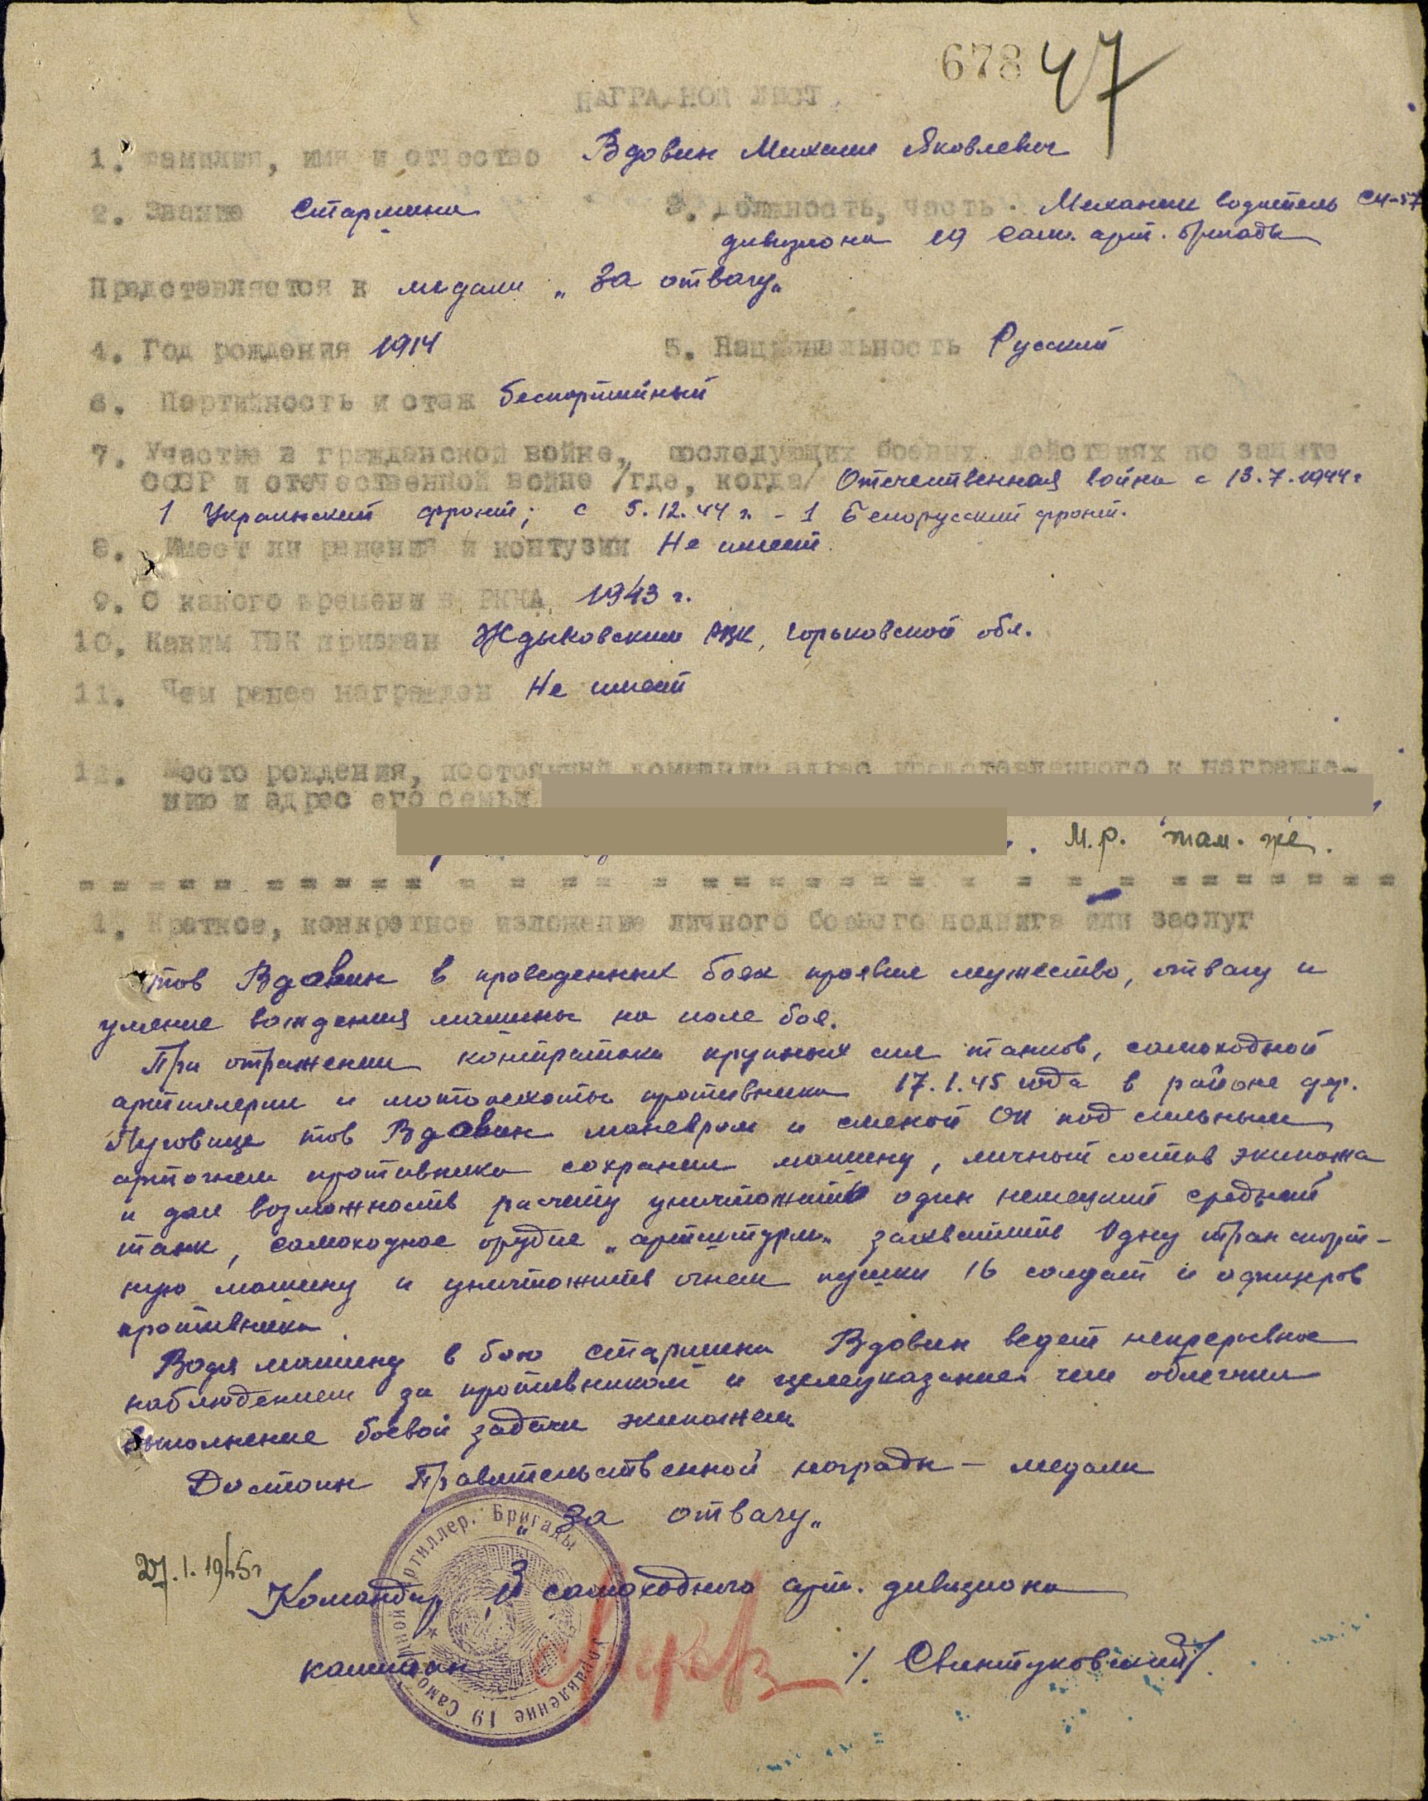 678 47
НАГРАДНОЙ ЛИСТ.
1. Фамилия, имя и отчество Вдовин Михаил Яковлевич
2. Звание Старшина 3. Должность, часть Механик водитель СУ-57
дивизиона 19 сам. арт. бригады
Представляется к медали „За отвагу„
4. Год рождения 1914 5. Национальность Русский
6. Партийность и стаж беспартийный
7. Участие в гражданской войне, последующих боевых действиях по защите
СССР и отечественной войне /где, когда/ Отечественная война с 13.7.1944г
1 Украинский фронт; с 5.12.44 г. - 1 Белорусский фронт.
8. Имеет ли ранения и контузии Не имеет.
9. С какого времени в РККА 1943 г.
10. Каким РВК призван РВК, Горьковской обл.
11. Чем ранее награжден Не имеет
12. Место рождения, постоянный домашний адрес представленного к награжде-
нию и адрес его семьи
М.р. там. же.
1. Краткое, конкретное изложение личного боевого подвига или заслуг
тов Вдовин в проведенных боях проявил мужество, отвагу и
умение вождения машины на поле боя.
При отражении контратаки крупных сил танков, самоходной
артиллерии и мотопехоты противника 17.1.45 года в районе дер.
тов Вдовин маневром и сменой ОП под сильным
артогнем противника сохранил машину, личный состав экипажа
и дал возможность расчету уничтожить один немецкий средний
танк, самоходное орудие „артштурм„ захватить одну транспорт-
ную машину и уничтожить огнем пушки 16 солдат и офицеров
противника.
Водя машину в бою старшина Вдовин ведет непрерывное
наблюдением за противником и целеуказание чем облегчил
выполнение боевой задачи экипажем
Достоин Правительственной награды - медали
„За отвагу„
27.1.1945г
Командир 3 самоходного арт. дивизиона
капитан /. Свинтуковский/.
Управление 19 Самоходной Артиллер. Бригады